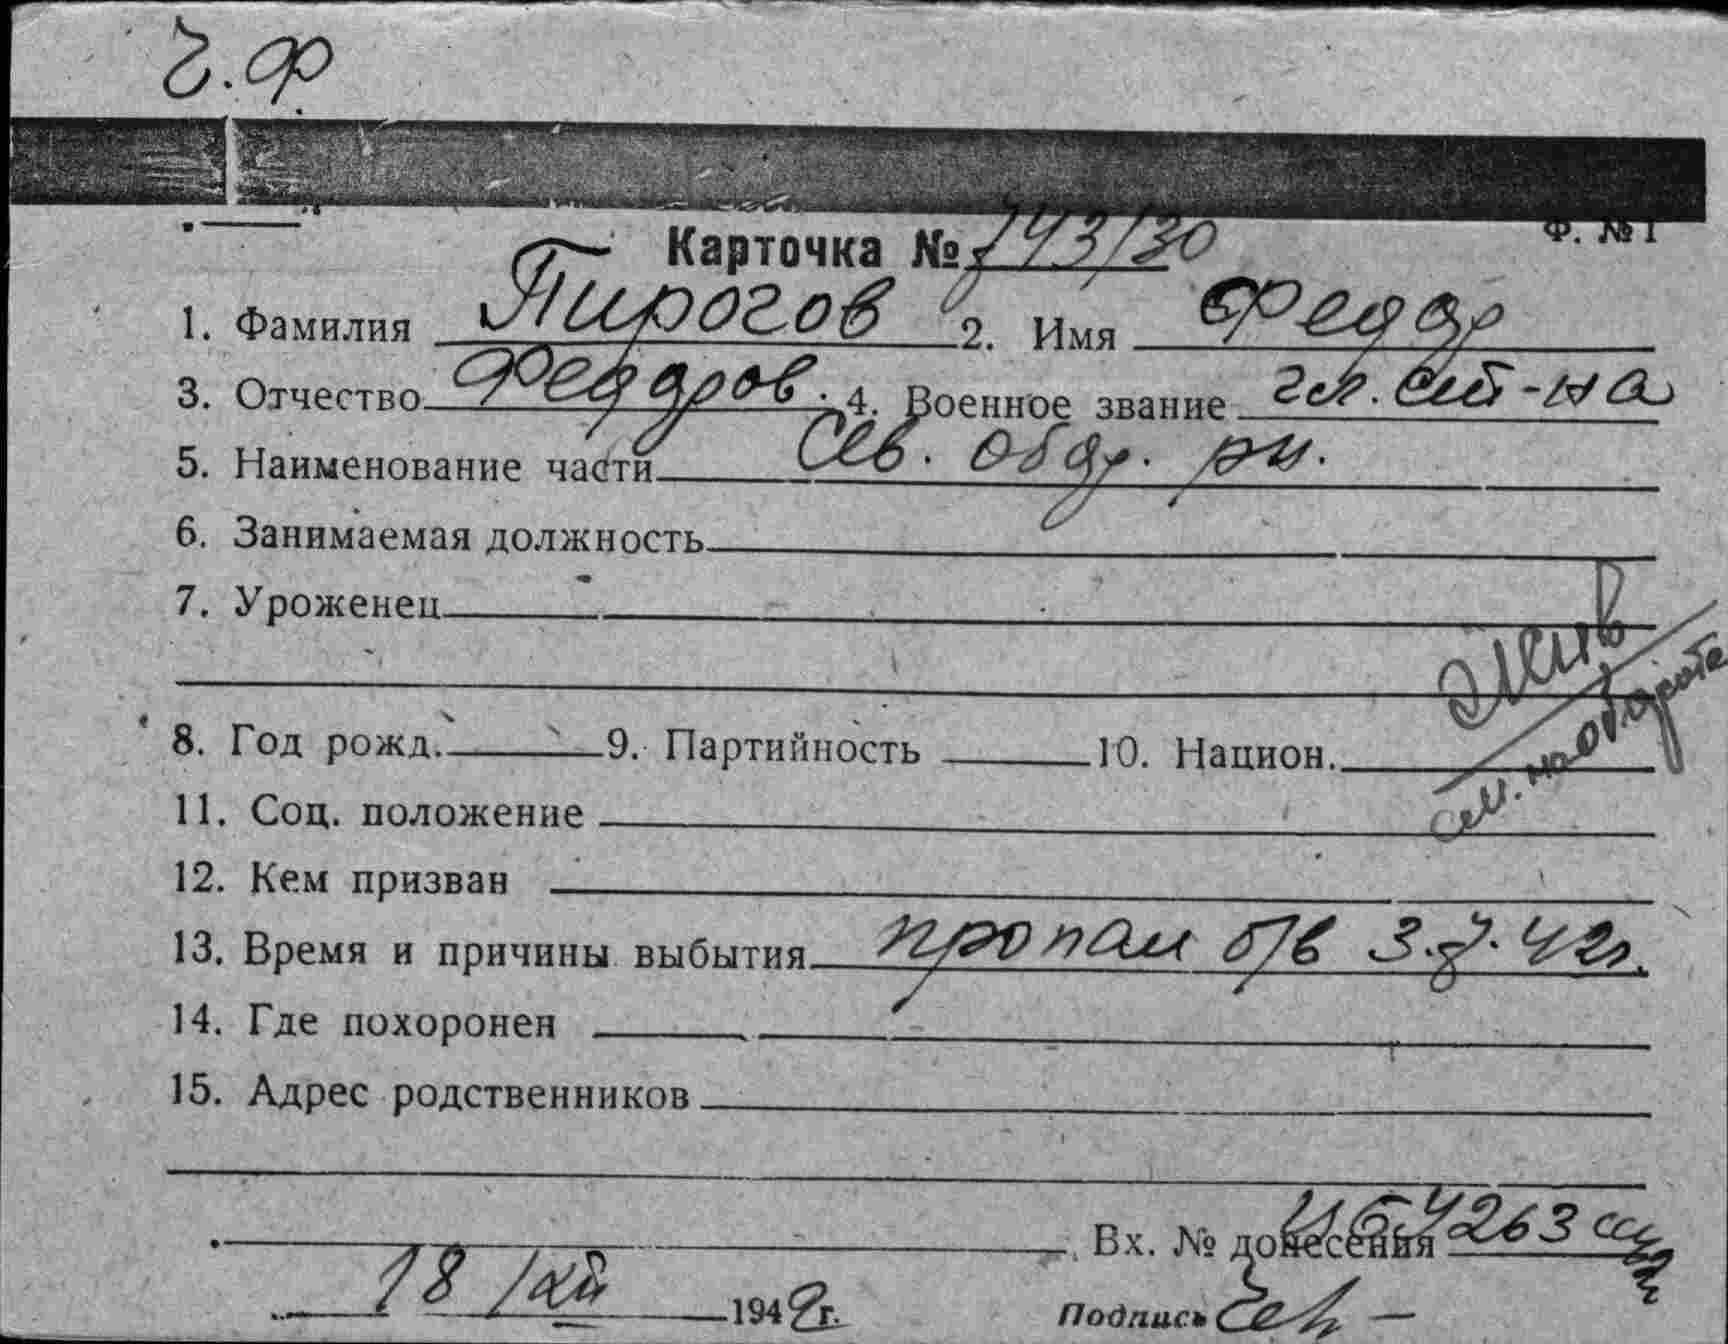 ч.ф
Ф. № 1
Карточка № 743/30
1. Фамилия Пирогов 2. Имя Федор
3. Отчество Федоров. 4. Военное звание гл. ст-на
5. Наименование части Сев. обор. рн.
6. Занимаемая должность
7. Уроженец
Жив
см. на обороте
8. Год рожд. 9. Партийность 10. Национ.
11. Соц. положение
12. Кем призван
13. Время и причины выбытия пропал б/в 3.7.42г.
14. Где похоронен
15. Адрес родственников
Вх. № донесения 4263 сс
18 /XII 1949г.
Подпись